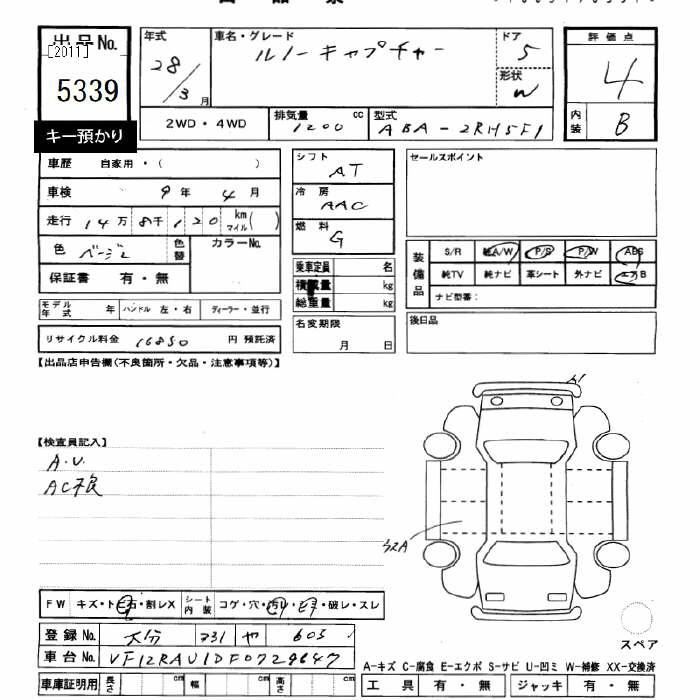 出品No.
[2011]
5339
キー預かり
年式
28/3月
車名・グレード
ルノーキャプチャー
ドア
5
形状
W
評価点
4
内装
B
2WD・4WD
排気量 1200 cc
型式 ABA-2RH5F1
車歴 自家用・( )
車検 9年 4月
走行 14万 8千 120 km マイル( )
色 ベージュ
色替
カラーNo.
保証書 有・無
モデル年式 年
ハンドル 左・右
ディーラー・並行
リサイクル料金 16850 円 預託済
シフト
AT
冷房
AAC
燃料
G
乗車定員 名
積載量 kg
総重量 kg
名変期限
月 日
セールスポイント
装備品
S/R 純A/W P/S P/W ABS
純TV 純ナビ 革シート 外ナビ エアB
ナビ型番:
後日品
【出品店申告欄(不良箇所・欠品・注意事項等)】
【検査員記入】
A.U.
AC不良
A1
うスA
スペア
FW キズ・トビ石・割レX
シート内装 コゲ・穴・汚レ・ヒヨ・破レ・スレ
登録No. 大分 331 や 603
車台No. VF12RAU1DF0729647
車庫証明用 長さ cm 幅 cm 高さ cm
A-キズ C-腐食 E-エクボ S-サビ U-凹ミ W-補修 XX-交換済
工具 有・無 ジャッキ 有・無